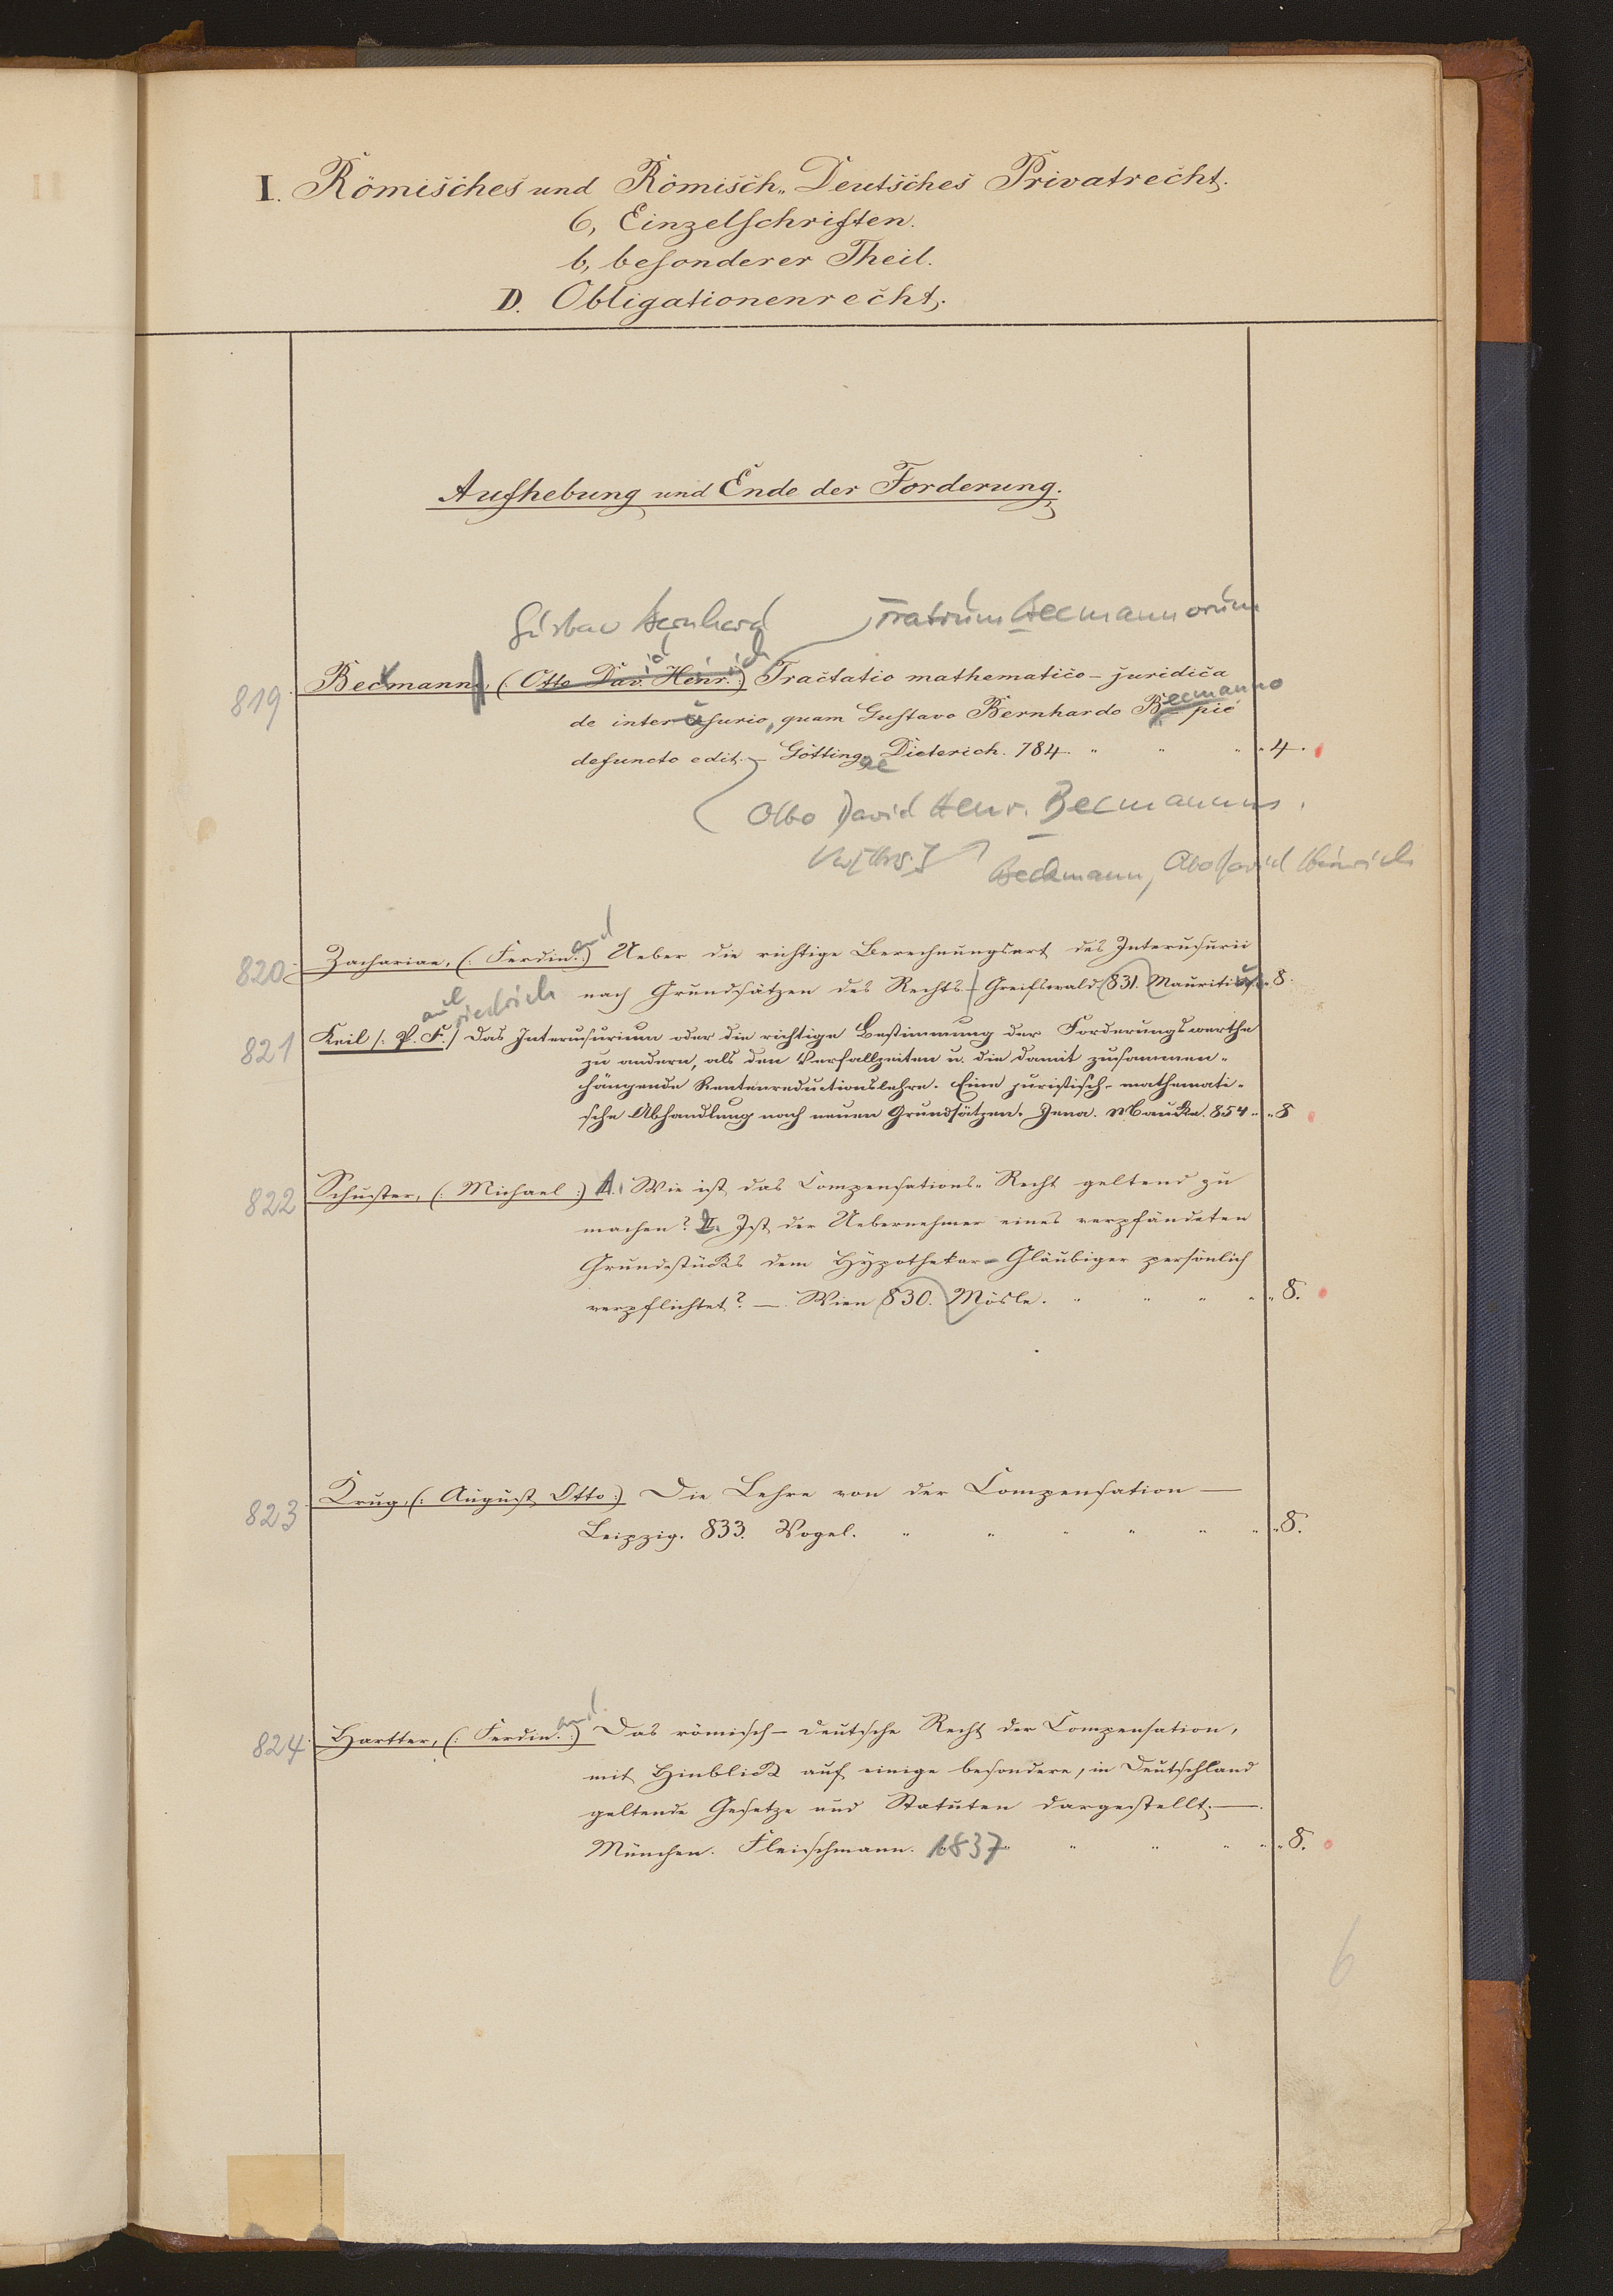 I. Römisches und Römisch-Deutsches Privatrecht.
6, Einzelschriften.
b, besonderer Theil.
D. Obligationenrecht.
Aufhebung und Ende der Forderung.
Gustav Bernhard Fratrum Becmannorum
819. Becmann, (: Otto Dav. Henr. :) Tractatio mathematico-juridica
de interusurio, quam Gustavo Bernhardo Becmanno pie
defuncto edit. — Göttingae Dieterich. 784. " " " " 4.
Otto David Henr. Becmannus.
Beckmann, Otto David Heinrich
820. Zachariae, (: Ferdinand :) Ueber die richtige Berechnungsart des Interusurii
nach Grundsätzen des Rechts — Greifswald 831. Mauritius. " 8.
aul riedrich
821 Keil /: P. F. / Das Interusurium oder die richtige Bestimmung der Forderungswerthe
zu andern, als den Verfallzeiten u. die damit zusammen-
hängende Rentenreductionslehre. Eine juristisch-mathemati-
sche Abhandlung nach neuen Grundsätzen. Jena. Mauke. 854 " " 8
822 Schuster, (: Michael :) 1. Wie ist das Compensations-Recht geltend zu
machen? 2. Ist der Uebernehmer eines verpfändeten
Grundstücks dem Hypothekar-Gläubiger persönlich
verpflichtet? — Wien 830. Mösle. " " " " " 8.
823 Krug, (: August Otto :) Die Lehre von der Compensation —
Leipzig. 833. Vogel. " " " " " " " 8.
824. Hartter, (: Ferdinand. :) Das römisch-deutsche Recht der Compensation,
mit Hinblick auf einige besondere, in Deutschland
geltende Gesetze und Statuten dargestellt. —
München. Fleischmann. 1837 " " " " " 8.
6